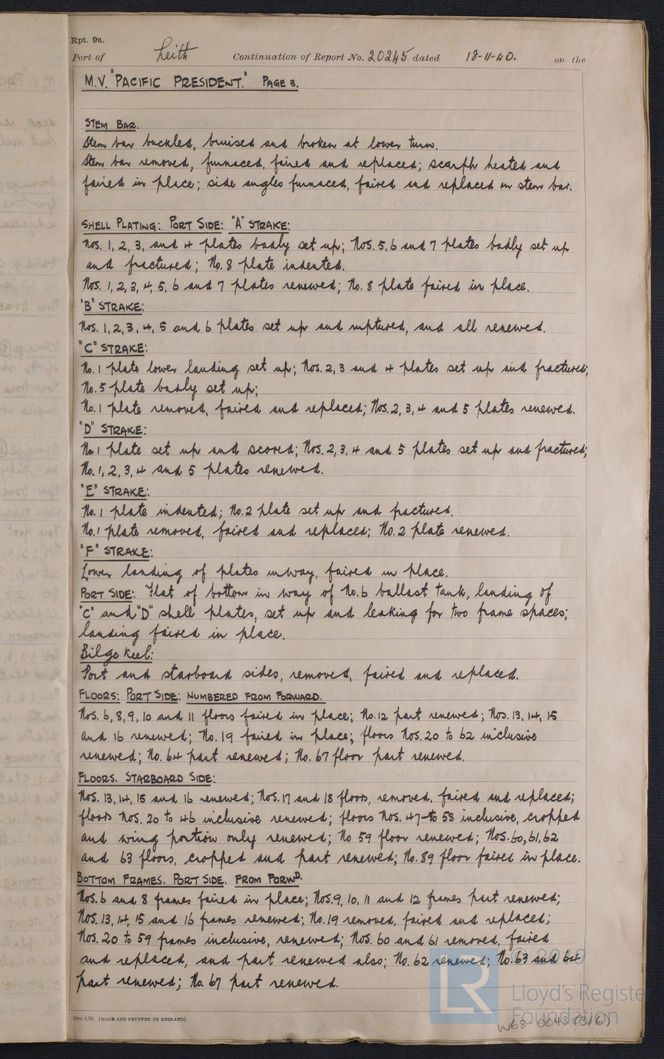 Rpt. 9a.
Port of Leith Continuation of Report No. 20245 dated 18-11-40. on the
M.V. "PACIFIC PRESIDENT." PAGE 3.
STEM BAR.
Stem bar buckled, bruised and broken at lower turn.
Stem bar removed, furnaced, faired and replaced; scarph heated and
faired in place; side angles furnaced, faired and replaced on stem bar.
SHELL PLATING: PORT SIDE: "A" STRAKE:
Nos. 1, 2, 3, and 4 plates badly set up; Nos. 5, 6 and 7 plates badly set up
and fractured; No. 8 plate indented.
Nos. 1, 2, 3, 4, 5, 6 and 7 plates renewed; No. 8 plate faired in place.
"B" STRAKE:
Nos. 1, 2, 3, 4, 5 and 6 plates set up and ruptured, and all renewed.
"C" STRAKE:
No. 1 plate lower landing set up; Nos. 2, 3 and 4 plates set up and fractured;
No. 5 plate badly set up;
No. 1 plate removed, faired and replaced; Nos. 2, 3, 4 and 5 plates renewed.
"D" STRAKE:
No. 1 plate set up and scored; Nos. 2, 3, 4 and 5 plates set up and fractured;
No. 1, 2, 3, 4 and 5 plates renewed.
"E" STRAKE:
No. 1 plate indented; No. 2 plate set up and fractured.
No. 1 plate removed, faired and replaced; No. 2 plate renewed.
"F" STRAKE:
Lower landing of plates inway, faired in place.
PORT SIDE: Flat of bottom in way of No. 6 ballast tank, landing of
"C" and "D" shell plates, set up and leaking for two frame spaces;
landing faired in place.
Bilge keel:
Port and starboard sides, removed, faired and replaced.
FLOORS: PORT SIDE: NUMBERED FROM FORWARD.
Nos. 6, 8, 9, 10 and 11 floors faired in place; No. 12 part renewed; Nos. 13, 14, 15
and 16 renewed; No. 19 faired in place; floors Nos. 20 to 62 inclusive
renewed; No. 64 part renewed; No. 67 floor part renewed.
FLOORS. STARBOARD SIDE:
Nos. 13, 14, 15 and 16 renewed; Nos. 17 and 18 floors, removed, faired and replaced;
floors Nos. 20 to 46 inclusive renewed; floors Nos. 47 to 58 inclusive, cropped
and wing portion only renewed; No 59 floor renewed; Nos. 60, 61, 62
and 63 floors, cropped and part renewed; No. 89 floor faired in place.
BOTTOM FRAMES. PORT SIDE. FROM FORWD.
Nos. 6 and 8 frames faired in place; Nos. 9, 10, 11 and 12 frames part renewed;
Nos. 13, 14, 15 and 16 frames renewed; No. 19 removed, faired and replaced;
Nos. 20 to 59 frames inclusive, renewed; Nos. 60 and 61 removed, faired
and replaced, and part renewed also; No. 62 renewed; No. 63 and 64
part renewed; No. 67 part renewed.
(MADE AND PRINTED IN ENGLAND)
LR
Lloyd's Register
Foundation